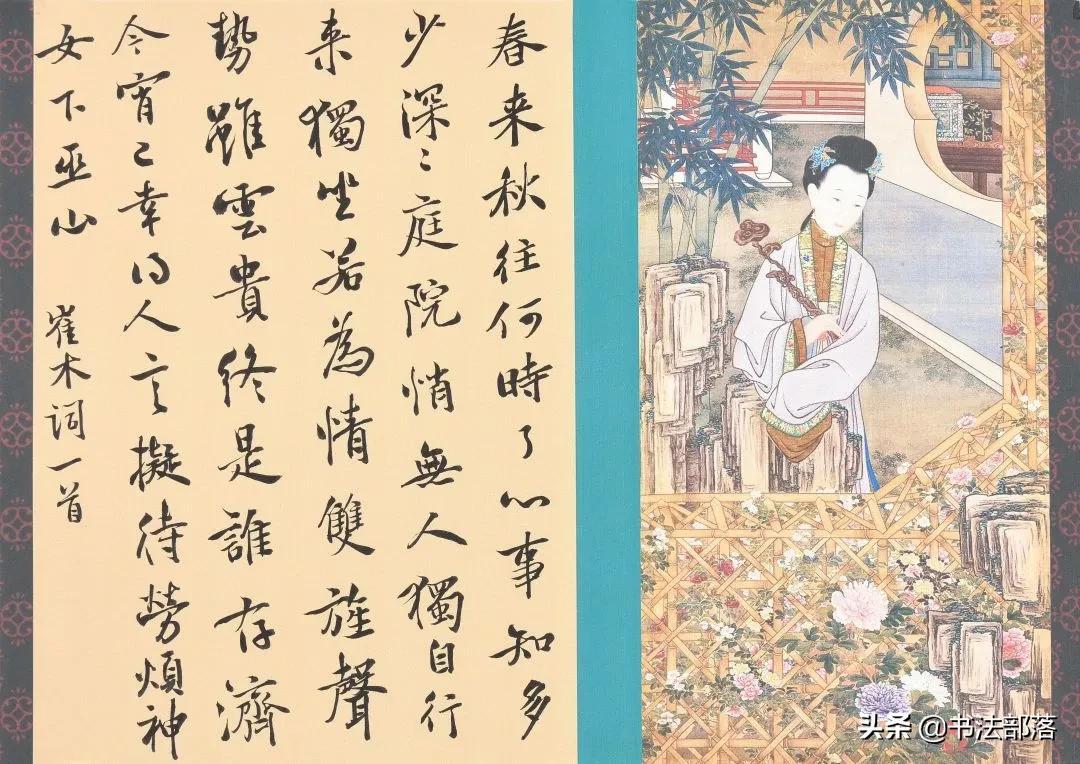 春来秋往何時了心事知多
少深〻庭院悄無人獨自行
来獨坐若為情雙旌聲
勢雖雲貴終是誰存濟
今宵已幸得人言擬待勞煩神
女下巫山
崔木词一首
头条 @书法部落